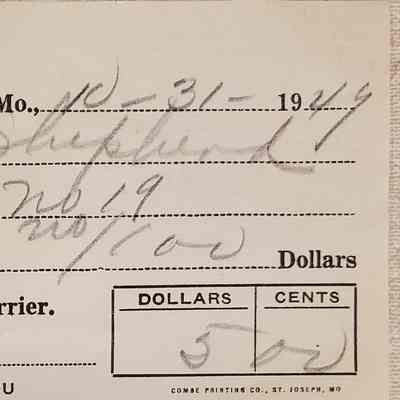 Mo., 10-31-1949
Shepherd
no 19
no/100 Dollars
rrier.
DOLLARS CENTS
5 00
U
COMBE PRINTING CO., ST. JOSEPH, MO